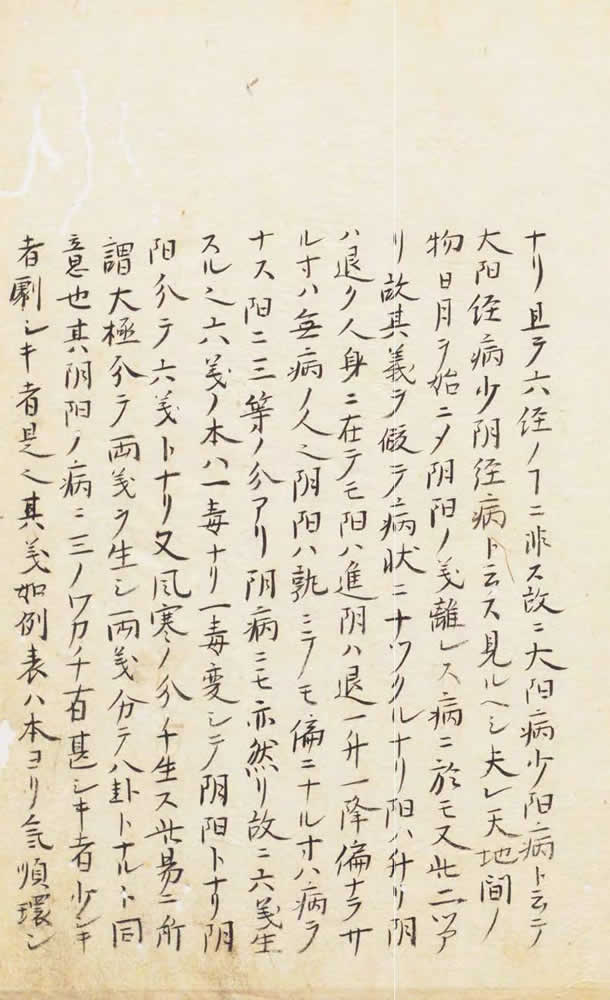 ナリ且ラ六経ノヿニ非ス故ニ大阳病少阳病ト云テ
大阳経病少阴経病ト云ス見ルヘシ夫レ天地間ノ
物日月ヲ始ニメ阴阳ノ義離レス病ニ於モ又此二ツア
リ故其義ヲ假テ病状ニナツクルナリ阳ハ升リ阴
ハ退ク人身ニ在テモ阳ハ進阴ハ退一升一降偏ナラサ
ルヿハ無病ノ人之阴阳ハ孰ニテノモ偏ニナルヿハ病ヲ
ナス阳ニ三等ノ分アリ阴病ニモ亦然リ故ニ六義生
スル之六義ノ本ハ一毒ナリ一毒変シテ阴阳トナリ阴
阳分テ六義トナリ又風寒ノ分チ生ス此易ニ所
謂大極分テ両義ヲ生シ両義分テ八卦トナルト同
意也其阴阳ノ病ニ三ノワカチ有甚シキ者少シキ
者劇シキ者是之其義如例表ハ本ヨリ氣順環シ